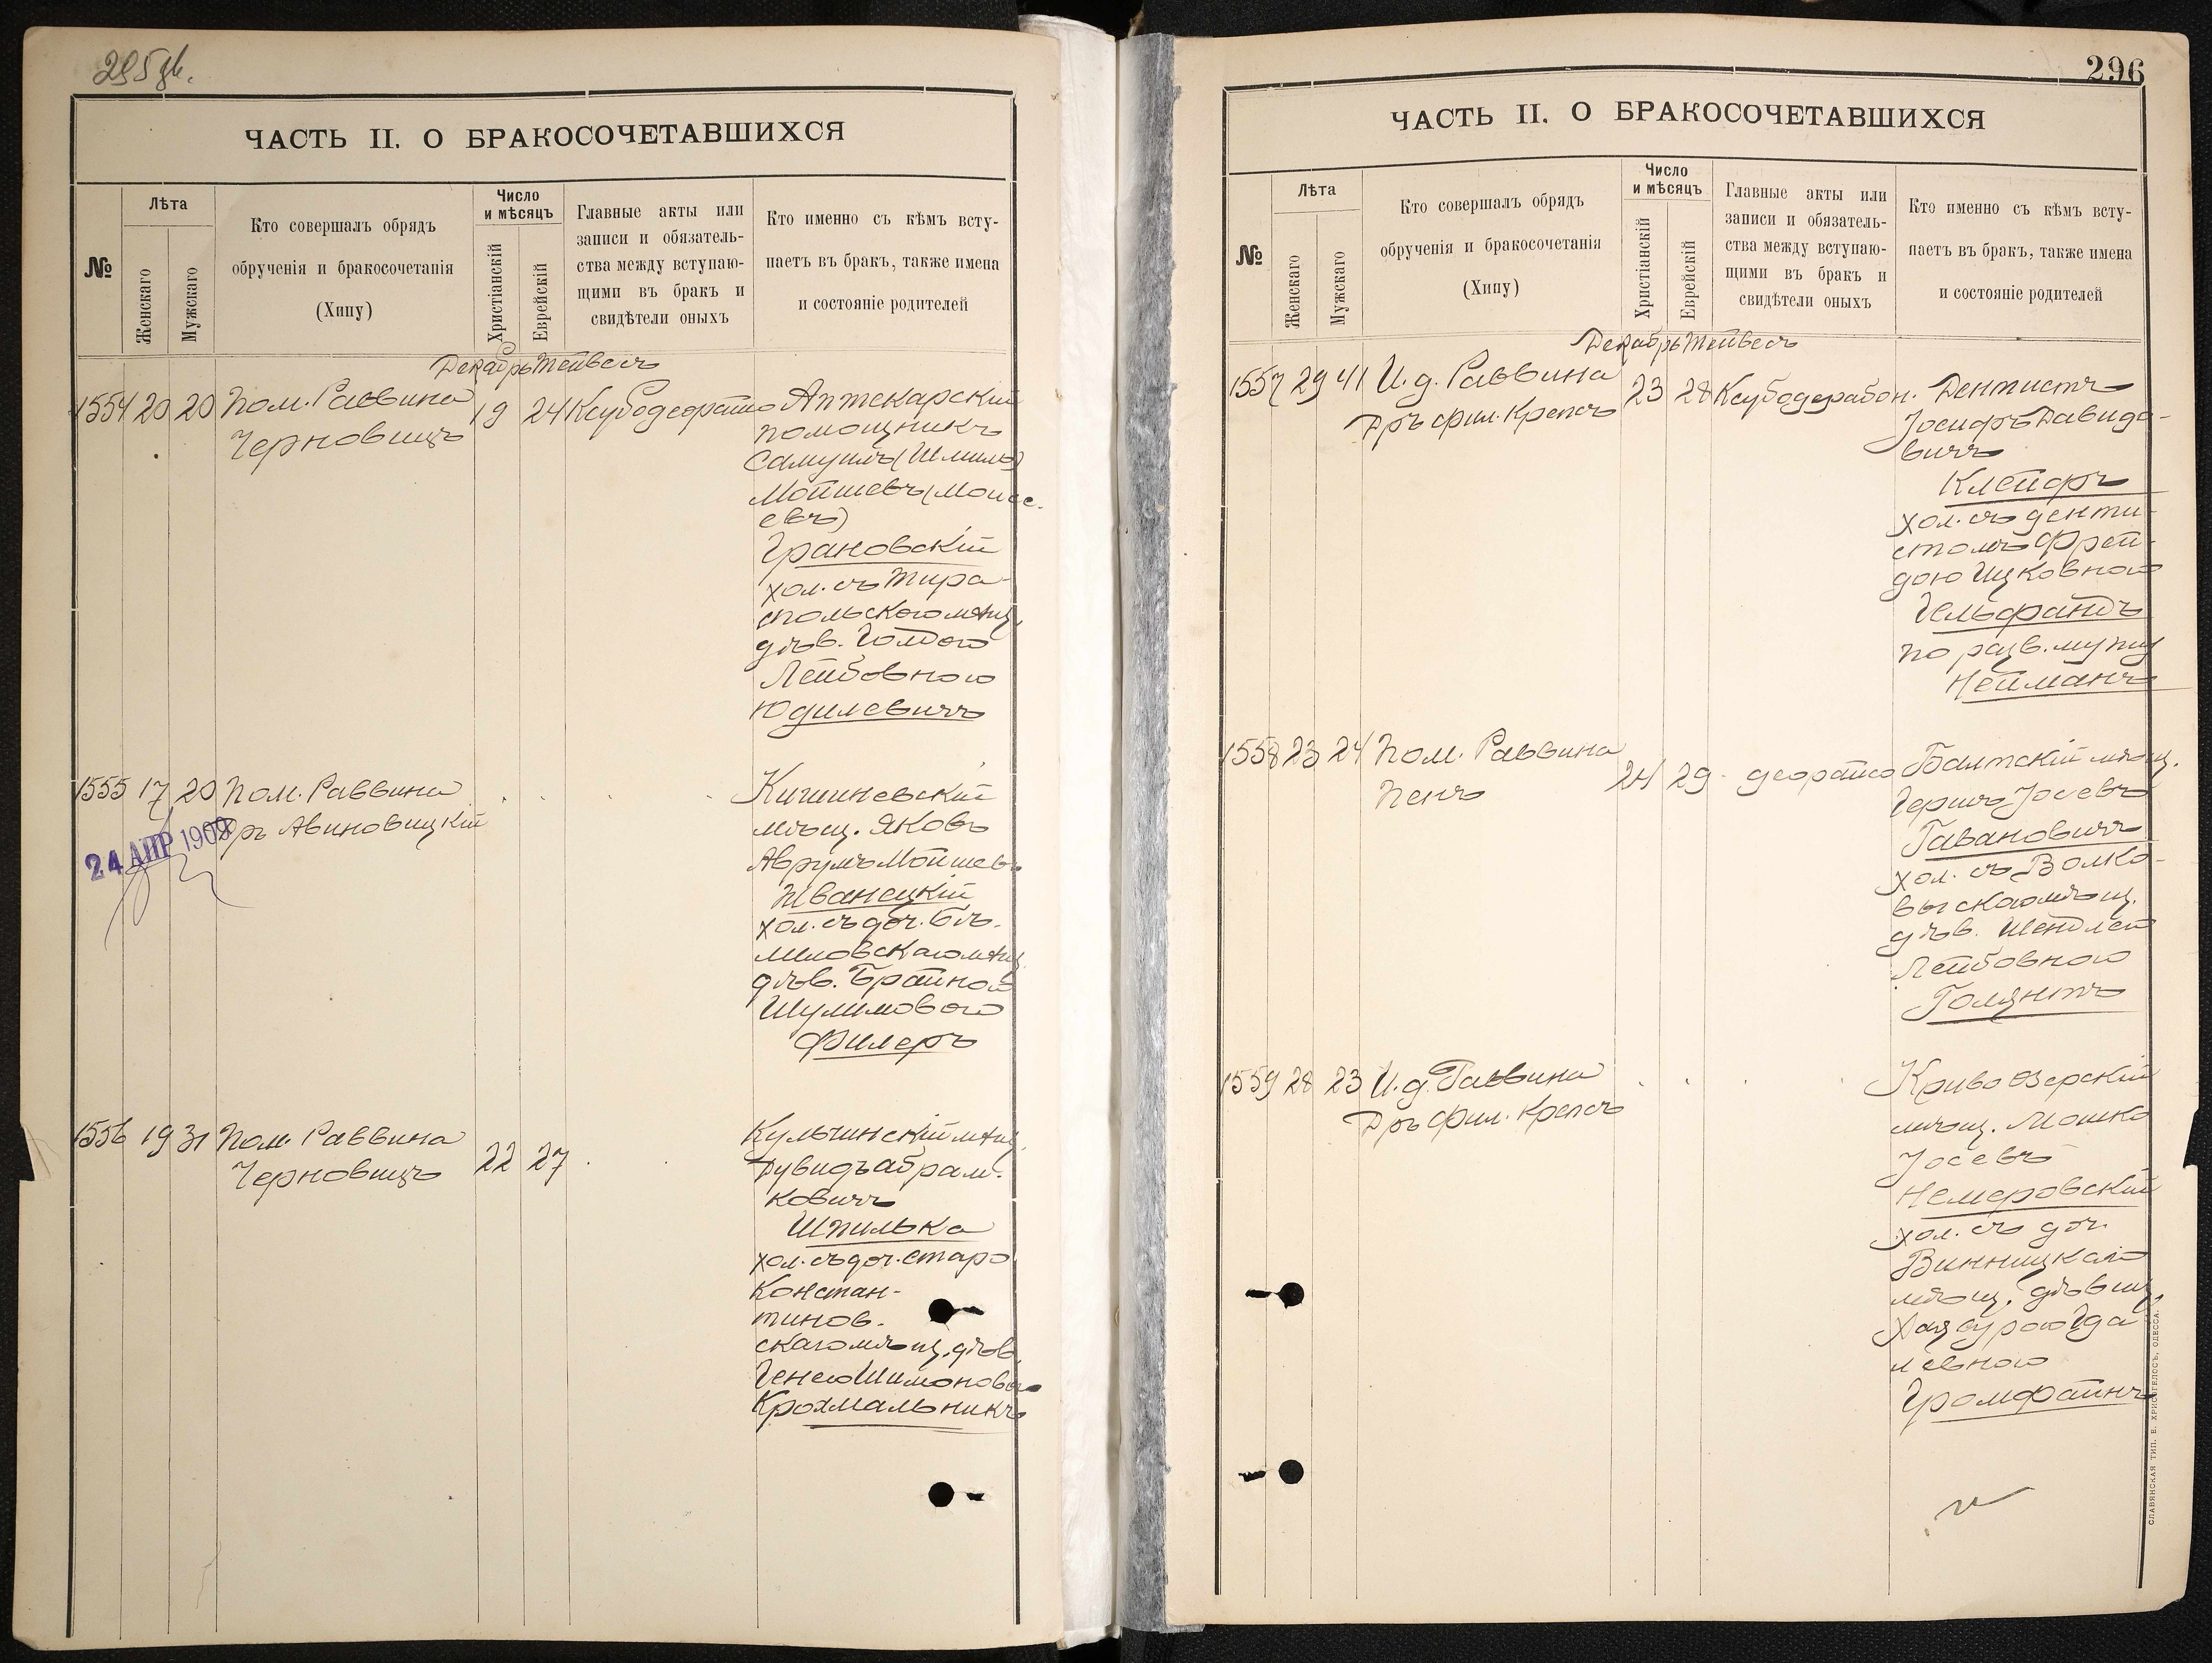 ЧАСТЬ II. О БРАКОСОЧЕТАВШИХСЯ
№
Лѣта
Женскаго
Мужскаго
Кто совершалъ обрядъ
обрученія и бракосочетанія
(Хипу)
Число
и мѣсяцъ
Христіанскій
Еврейскій
Главные акты или
записи и обязатель-
ства между вступаю-
щими въ бракъ и
свидѣтели оныхъ
Кто именно съ кѣмъ всту-
паетъ въ бракъ, также имена
и состояніе родителей
Декабрь Тейвесъ
1554 20 20 Пом. Раввина 19 24 Аптекарскій
Черновицъ
помощникъ
Самуилъ (Шмиль)
Мойшевъ (Моисе-
евъ)
Грановскій
хол. съ Тира-
спольскою мѣщ.
дѣв. Голдою
Лейбовною
Юдилевичъ
1555 17 20 Пом. Раввина
Дръ Авиновицкій
24 АПР 1909
Кишиневскій
мѣщ. Яковъ
Аврумъ Мойшев.
Жванецкій
хол. съ доч. Бѣ-
ловскаго мѣщ.
дѣв. Брайною
Шулимовою
Филеръ
1556 19 31 Пом. Раввина 22 27
Черновицъ
Кульчинскій мѣщ.
Дувидъ Абрам-
ковичъ
Шпилька
хол. съ доч. Старо
Констан-
тинов-
скаго мѣщ. дѣв.
Генею Шимоновою
Крохмальникъ
296
ЧАСТЬ II. О БРАКОСОЧЕТАВШИХСЯ
№
Лѣта
Женскаго
Мужскаго
Кто совершалъ обрядъ
обрученія и бракосочетанія
(Хипу)
Число
и мѣсяцъ
Христіанскій
Еврейскій
Главные акты или
записи и обязатель-
ства между вступаю-
щими въ бракъ и
свидѣтели оныхъ
Кто именно съ кѣмъ всту-
паетъ въ бракъ, также имена
и состояніе родителей
Декабрь Тейвесъ
1557 29 41 И. д. Раввина 23 28 Дентистъ
Дръ фил. Крепсъ
Іосифъ Давидо-
вичъ
Клейфъ
хол. съ денти-
стомъ Фрей-
дою Ицковною
Гельфандъ
по разв. мужу
Нейманъ
1558 23 24 Пом. Раввина 24 29
Пенъ
Балтскій мѣщ.
Гершъ Іосевъ
Гавановичъ
хол. съ Волко-
выскою мѣщ.
дѣв. Шейндлею
Лейбовною
Голянтъ
1559 28 23 И. д. Раввина
Дръ фил. Крепсъ
Криво Озерскій
мѣщ. Мошко
Іосевъ
Немеровскій
хол. съ доч.
Винницкаго
мѣщ. дѣвиц.
Хая Сурою Гда
левною
Громфайнъ
СЛАВЯНСКАЯ ТИП. Е. ХРИСОГЕЛОСЪ, ОДЕССА.